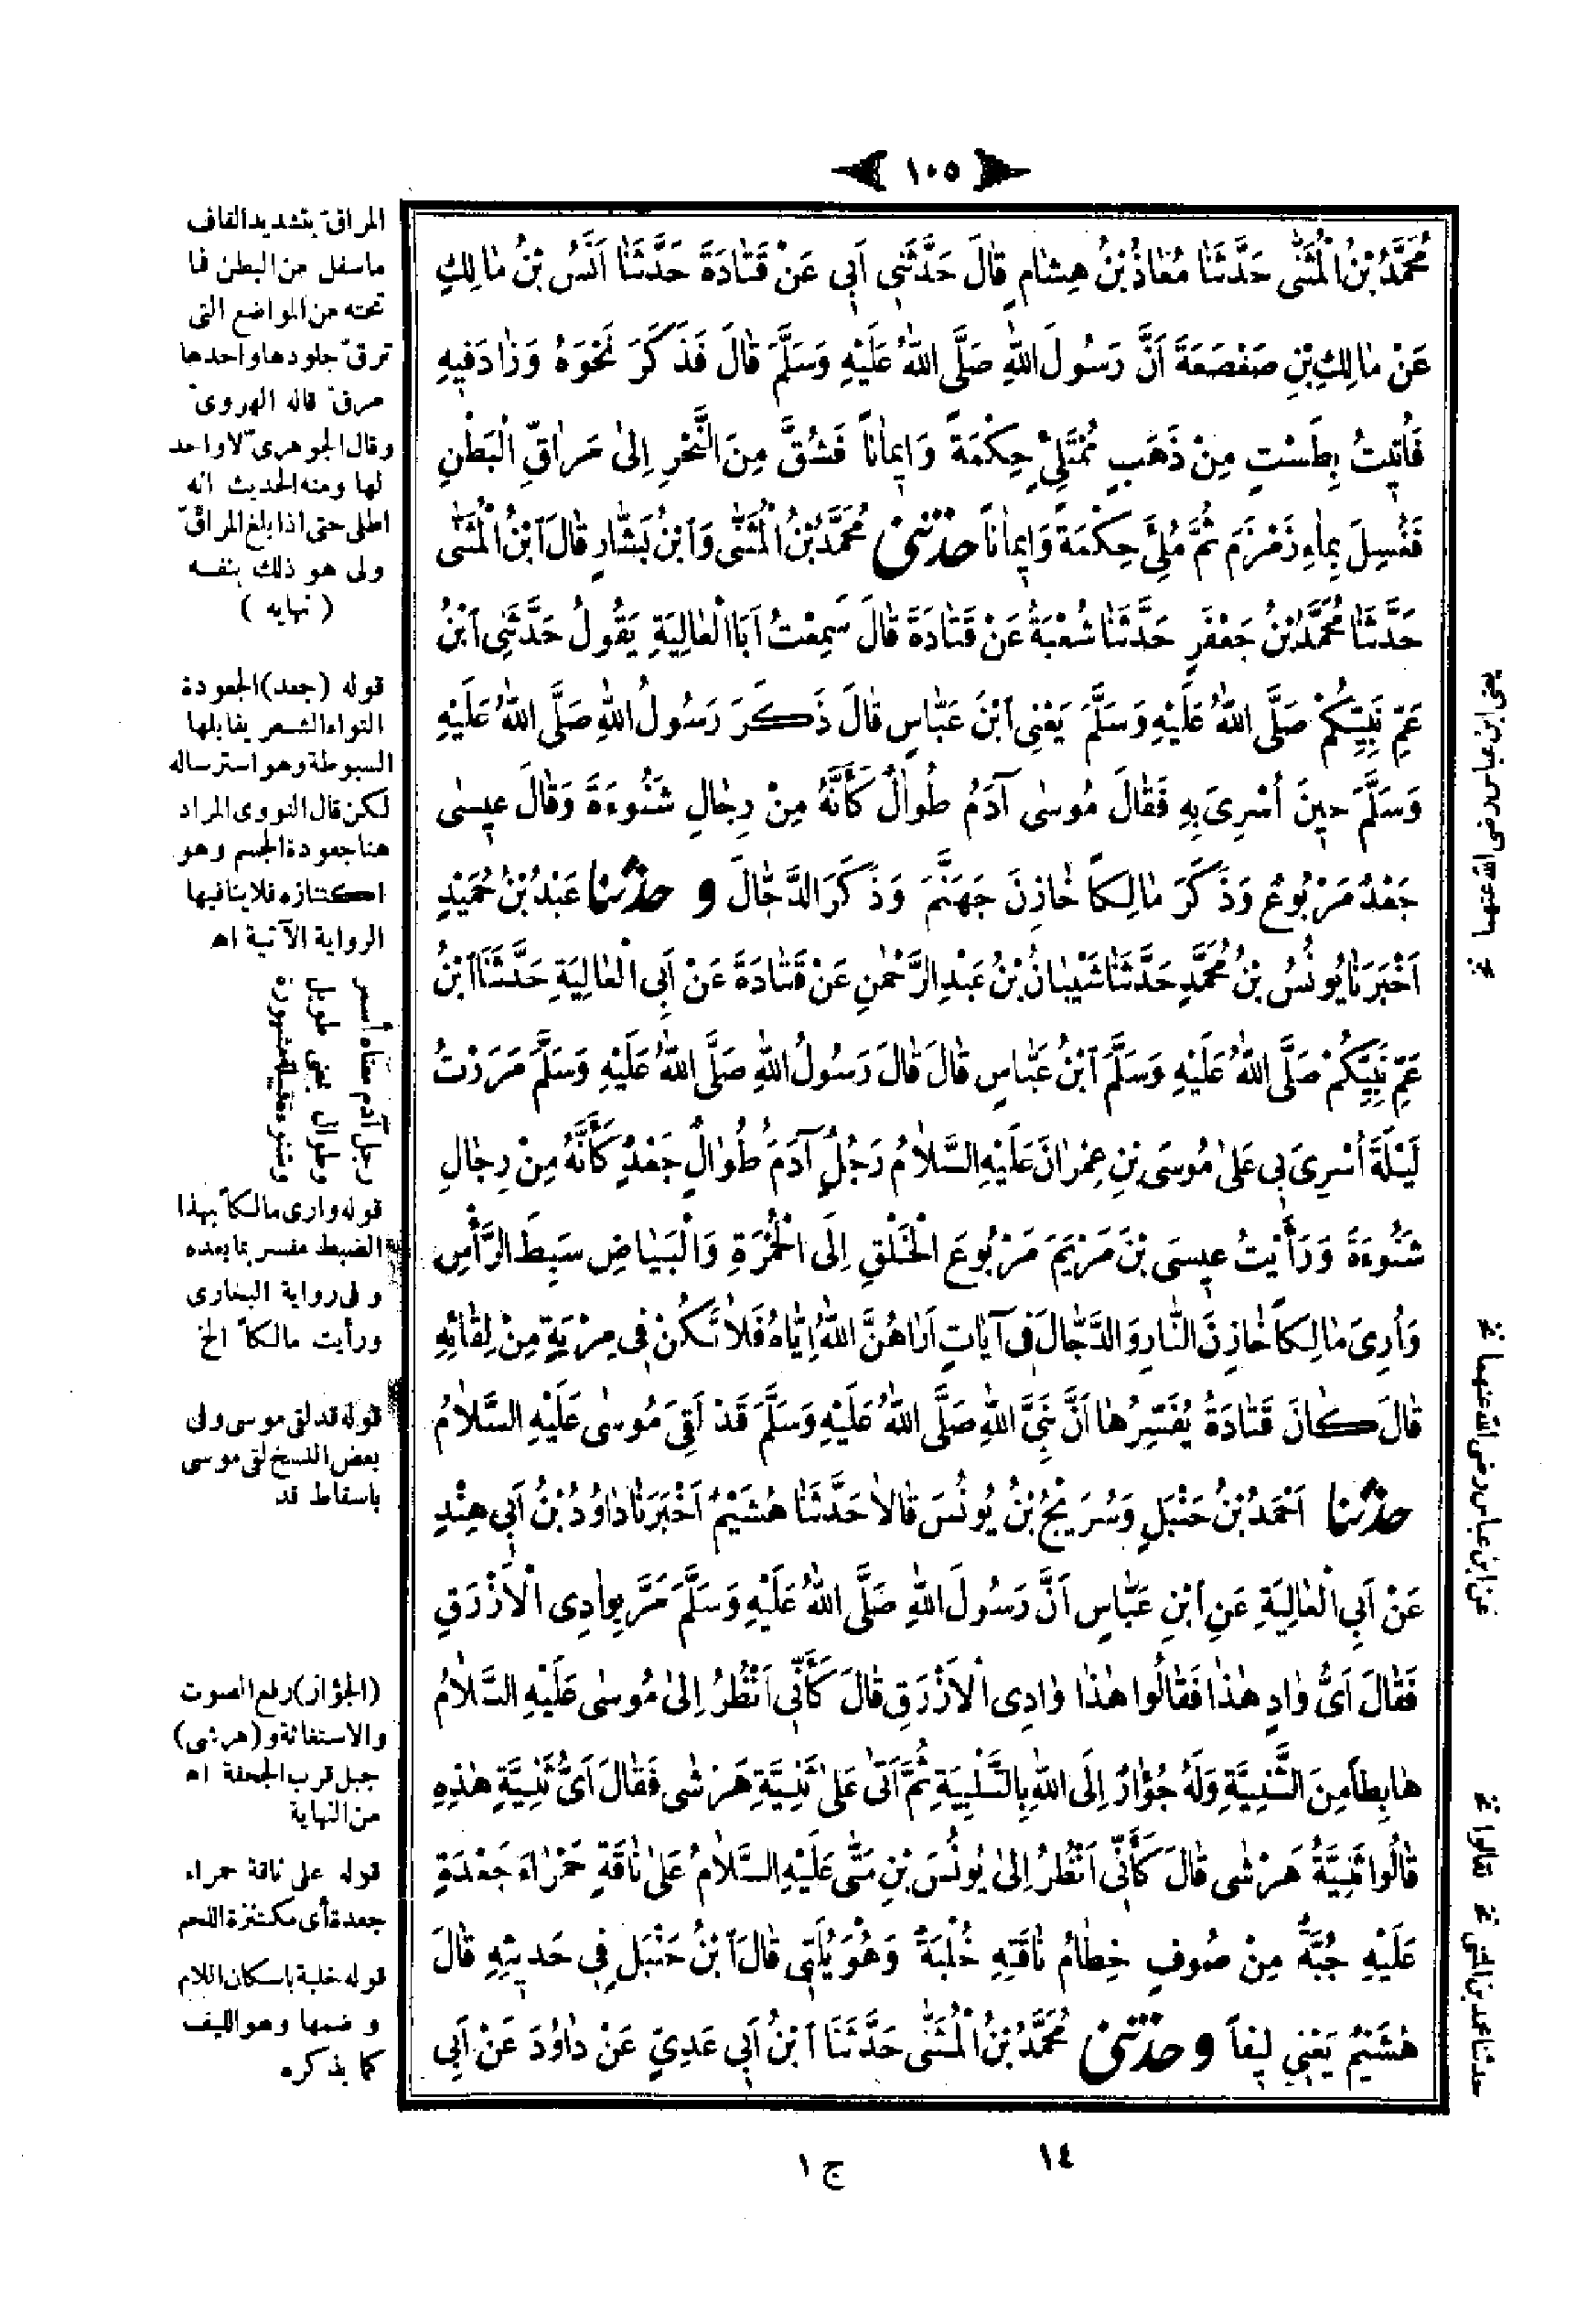 ١٠٥
مُحَمَّدُ بْنُ الْمُثَنَّى حَدَّثَنَا مُعَاذُ بْنُ هِشَامٍ قَالَ حَدَّثَنِي أَبِي عَنْ قَتَادَةَ حَدَّثَنَا أَنَسُ بْنُ مَالِكٍ
عَنْ مَالِكِ بْنِ صَعْصَعَةَ أَنَّ رَسُولَ اللهِ صَلَّى اللهُ عَلَيْهِ وَسَلَّمَ قَالَ فَذَكَرَ نَحْوَهُ وَزَادَ فِيهِ
فَأُتِيتُ بِطَسْتٍ مِنْ ذَهَبٍ مُمْتَلِئٍ حِكْمَةً وَإِيمَاناً فَشُقَّ مِنَ النَّحْرِ إِلَى مَرَاقِّ الْبَطْنِ
فَغُسِلَ بِمَاءِ زَمْزَمَ ثُمَّ مُلِئَ حِكْمَةً وَإِيمَاناً حَدَّثَنِي مُحَمَّدُ بْنُ الْمُثَنَّى وَابْنُ بَشَّارٍ قَالَ ابْنُ الْمُثَنَّى
حَدَّثَنَا مُحَمَّدُ بْنُ جَعْفَرٍ حَدَّثَنَا شُعْبَةُ عَنْ قَتَادَةَ قَالَ سَمِعْتُ أَبَا الْعَالِيَةِ يَقُولُ حَدَّثَنِي ابْنُ
عَمِّ نَبِيِّكُمْ صَلَّى اللهُ عَلَيْهِ وَسَلَّمَ يَعْنِي ابْنَ عَبَّاسٍ قَالَ ذَكَرَ رَسُولُ اللهِ صَلَّى اللهُ عَلَيْهِ
وَسَلَّمَ حِينَ أُسْرِيَ بِهِ فَقَالَ مُوسَى آدَمُ طُوَالٌ كَأَنَّهُ مِنْ رِجَالِ شَنُوءَةَ وَقَالَ عِيسَى
جَعْدٌ مَرْبُوعٌ وَذَكَرَ مَالِكاً خَازِنَ جَهَنَّمَ وَذَكَرَ الدَّجَّالَ و حَدَّثَنَا عَبْدُ بْنُ حُمَيْدٍ
أَخْبَرَنَا يُونُسُ بْنُ مُحَمَّدٍ حَدَّثَنَا شَيْبَانُ بْنُ عَبْدِ الرَّحْمٰنِ عَنْ قَتَادَةَ عَنْ أَبِي الْعَالِيَةِ حَدَّثَنَا ابْنُ
عَمِّ نَبِيِّكُمْ صَلَّى اللهُ عَلَيْهِ وَسَلَّمَ ابْنُ عَبَّاسٍ قَالَ قَالَ رَسُولُ اللهِ صَلَّى اللهُ عَلَيْهِ وَسَلَّمَ مَرَرْتُ
لَيْلَةَ أُسْرِيَ بِي عَلَى مُوسَى بْنِ عِمْرَانَ عَلَيْهِ السَّلَامُ رَجُلٌ آدَمُ طُوَالٌ جَعْدٌ كَأَنَّهُ مِنْ رِجَالِ
شَنُوءَةَ وَرَأَيْتُ عِيسَى بْنَ مَرْيَمَ مَرْبُوعَ الْخَلْقِ إِلَى الْحُمْرَةِ وَالْبَيَاضِ سَبِطَ الرَّأْسِ
وَأُرِيَ مَالِكاً خَازِنَ النَّارِ وَالدَّجَّالَ فِي آيَاتٍ أَرَاهُنَّ اللهُ إِيَّاهُ فَلَا تَكُنْ فِي مِرْيَةٍ مِنْ لِقَائِهِ
قَالَ كَانَ قَتَادَةُ يُفَسِّرُهَا أَنَّ نَبِيَّ اللهِ صَلَّى اللهُ عَلَيْهِ وَسَلَّمَ قَدْ لَقِيَ مُوسَى عَلَيْهِ السَّلَامُ
حَدَّثَنَا أَحْمَدُ بْنُ حَنْبَلٍ وَسُرَيْجُ بْنُ يُونُسَ قَالَا حَدَّثَنَا هُشَيْمٌ أَخْبَرَنَا دَاوُدُ بْنُ أَبِي هِنْدٍ
عَنْ أَبِي الْعَالِيَةِ عَنِ ابْنِ عَبَّاسٍ أَنَّ رَسُولَ اللهِ صَلَّى اللهُ عَلَيْهِ وَسَلَّمَ مَرَّ بِوَادِي الْأَزْرَقِ
فَقَالَ أَيُّ وَادٍ هٰذَا فَقَالُوا هٰذَا وَادِي الْأَزْرَقِ قَالَ كَأَنِّي أَنْظُرُ إِلَى مُوسَى عَلَيْهِ السَّلَامُ
هَابِطاً مِنَ الثَّنِيَّةِ وَلَهُ جُؤَارٌ إِلَى اللهِ بِالتَّلْبِيَةِ ثُمَّ أَتَى عَلَى ثَنِيَّةِ هَرْشَى فَقَالَ أَيُّ ثَنِيَّةٍ هٰذِهِ
قَالُوا ثَنِيَّةُ هَرْشَى قَالَ كَأَنِّي أَنْظُرُ إِلَى يُونُسَ بْنِ مَتَّى عَلَيْهِ السَّلَامُ عَلَى نَاقَةٍ حَمْرَاءَ جَعْدَةٍ
عَلَيْهِ جُبَّةٌ مِنْ صُوفٍ خِطَامُ نَاقَتِهِ خُلْبَةٌ وَهُوَ يُلَبِّي قَالَ ابْنُ حَنْبَلٍ فِي حَدِيثِهِ قَالَ
هُشَيْمٌ يَعْنِي لِيفاً و حَدَّثَنِي مُحَمَّدُ بْنُ الْمُثَنَّى حَدَّثَنَا ابْنُ أَبِي عَدِيٍّ عَنْ دَاوُدَ عَنْ أَبِي
المراقّ بتشديد القاف
ماسفل من البطن فما
تحته من المواضع التى
ترقّ جلودها واحدها
مرقّ قاله الهروىّ
وقال الجوهرىّ لا واحد
لها ومنه الحديث انه
اطلى حتى اذا بلغ المراقّ
ولى هو ذلك بنفسه
( نهايه )
قوله (جعد) الجعودة
التواء الشعر يقابلها
السبوطة وهو استرساله
لكن قال النووى المراد
هنا جعودة الجسم وهو
اكتنازه فلاينافيها
الرواية الآتية اه
رجل آدم معناه أسمر
وطوال بمعنى طويل
وشنوءة قبيلة مشهورة
قوله وارى مالكاً بهذا
الضبط مفسر بما بعده
وفى رواية البخارى
ورأيت مالكاً الخ
قوله قد لقى موسى وفى
بعض النسخ لقى موسى
باسقاط قد
(الجؤار) رفع الصوت
والاستغاثة و (هرشى)
جبل قرب الجحفة اه
من النهاية
قوله على ناقة حمراء
جعدة أى مكتنزة اللحم
قوله خلبة باسكان اللام
و ضمها وهو الليف
كما يذكره
يعنى ابن عباس رضى الله عنهما نخ
عن ابن عباس رضى الله عنهما نخ
حدثنا محمد بن المثنى نخ فقالوا نخ
١٤
ج ١